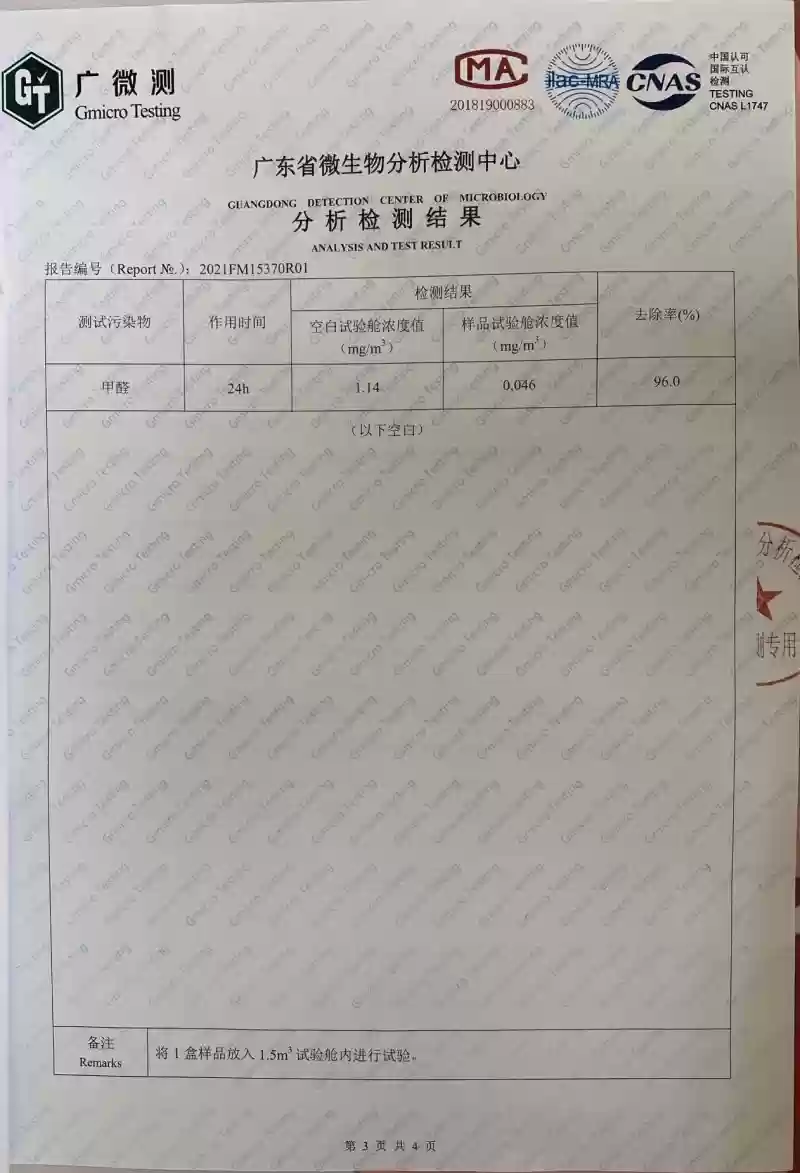 GT 广微测
Gmicro Testing
MA
201819000883
ilac-MRA
CNAS
中国认可
国际互认
检测
TESTING
CNAS L1747
广东省微生物分析检测中心
GUANGDONG DETECTION CENTER OF MICROBIOLOGY
分析检测结果
ANALYSIS AND TEST RESULT
报告编号（Report №.）：2021FM15370R01
测试污染物 作用时间 检测结果 去除率(%)
空白试验舱浓度值（mg/m³） 样品试验舱浓度值（mg/m³）
甲醛 24h 1.14 0.046 96.0
（以下空白）
分析检
测专用
备注
Remarks
将 1 盒样品放入 1.5m³ 试验舱内进行试验。
第 3 页 共 4 页